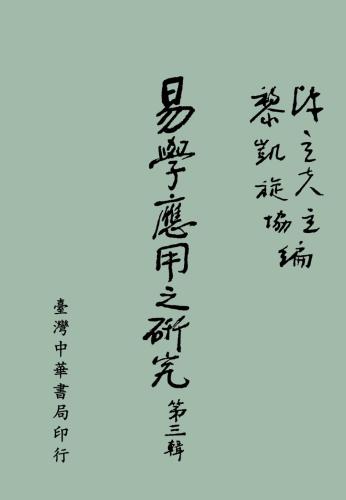 陳立夫主編
黎凱旋協編
易學應用之研究
第三輯
臺灣中華書局印行